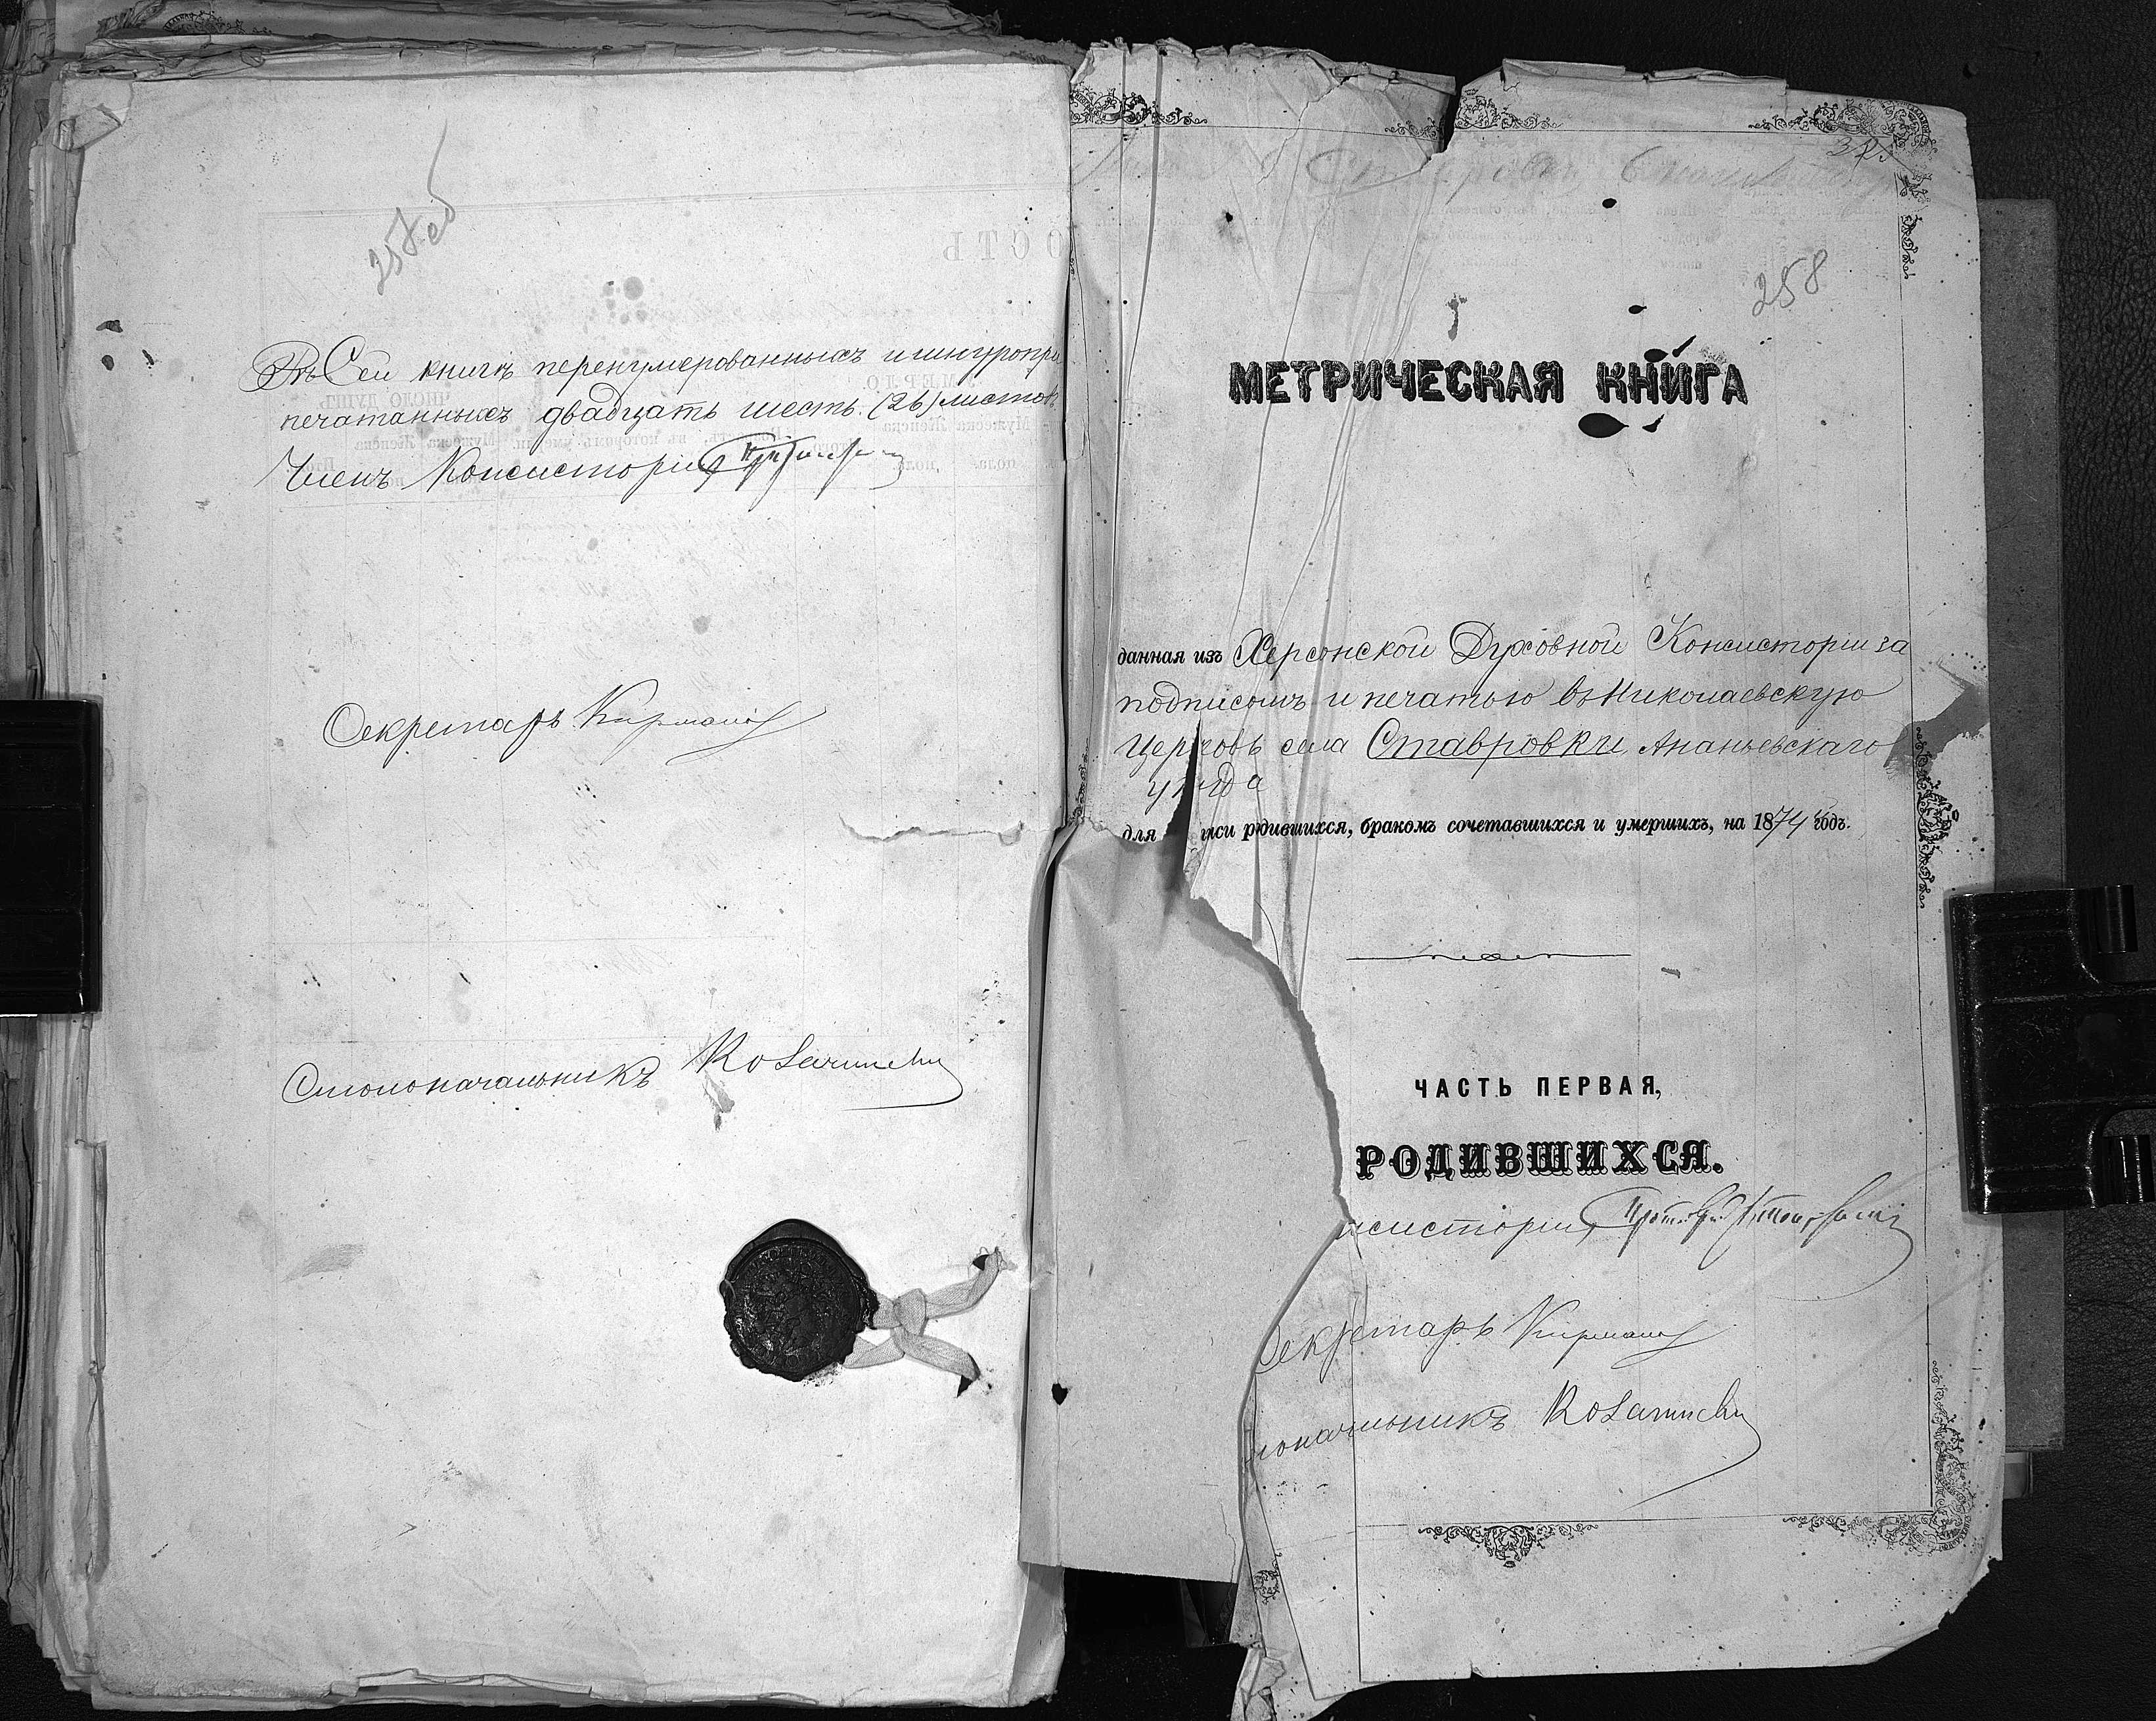 257 об
Въ Сей книгѣ перенумерованныхъ и шнуропри
печатанныхъ двадцать шесть (26) листовъ
Членъ Консисторіи,
Секретарь
Столоначальникъ
258
МЕТРИЧЕСКАЯ КНИГА
данная изъ Херсонской Духовной Консисторіи за
подписомъ и печатью въ Николаевскую
Церковь села Ставровки Ананьевскаго
уѣзда
для писи рдившихся, бракомъ сочетавшихся и умершихъ, на 1874 годъ.
ЧАСТЬ ПЕРВАЯ,
РОДИВШИХСЯ.
нсисторіи,
Секретарь
лоначальникъ